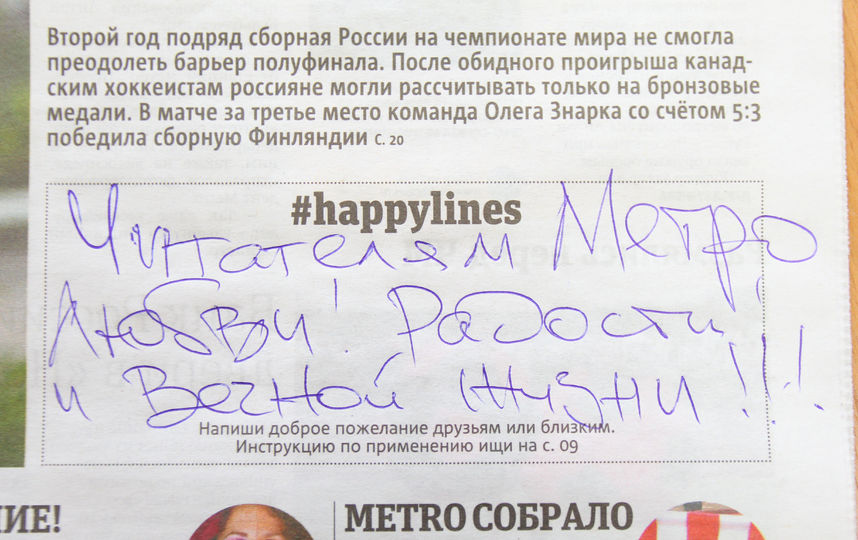 Второй год подряд сборная России на чемпионате мира не смогла
преодолеть барьер полуфинала. После обидного проигрыша канад-
ским хоккеистам россияне могли рассчитывать только на бронзовые
медали. В матче за третье место команда Олега Знарка со счётом 5:3
победила сборную Финляндии с. 20
#happylines
Читателям Метро
Любви! Радости!
и Вечной Жизни!!!
Напиши доброе пожелание друзьям или близким.
Инструкцию по применению ищи на с. 09
ИЕ!
METRO СОБРАЛО